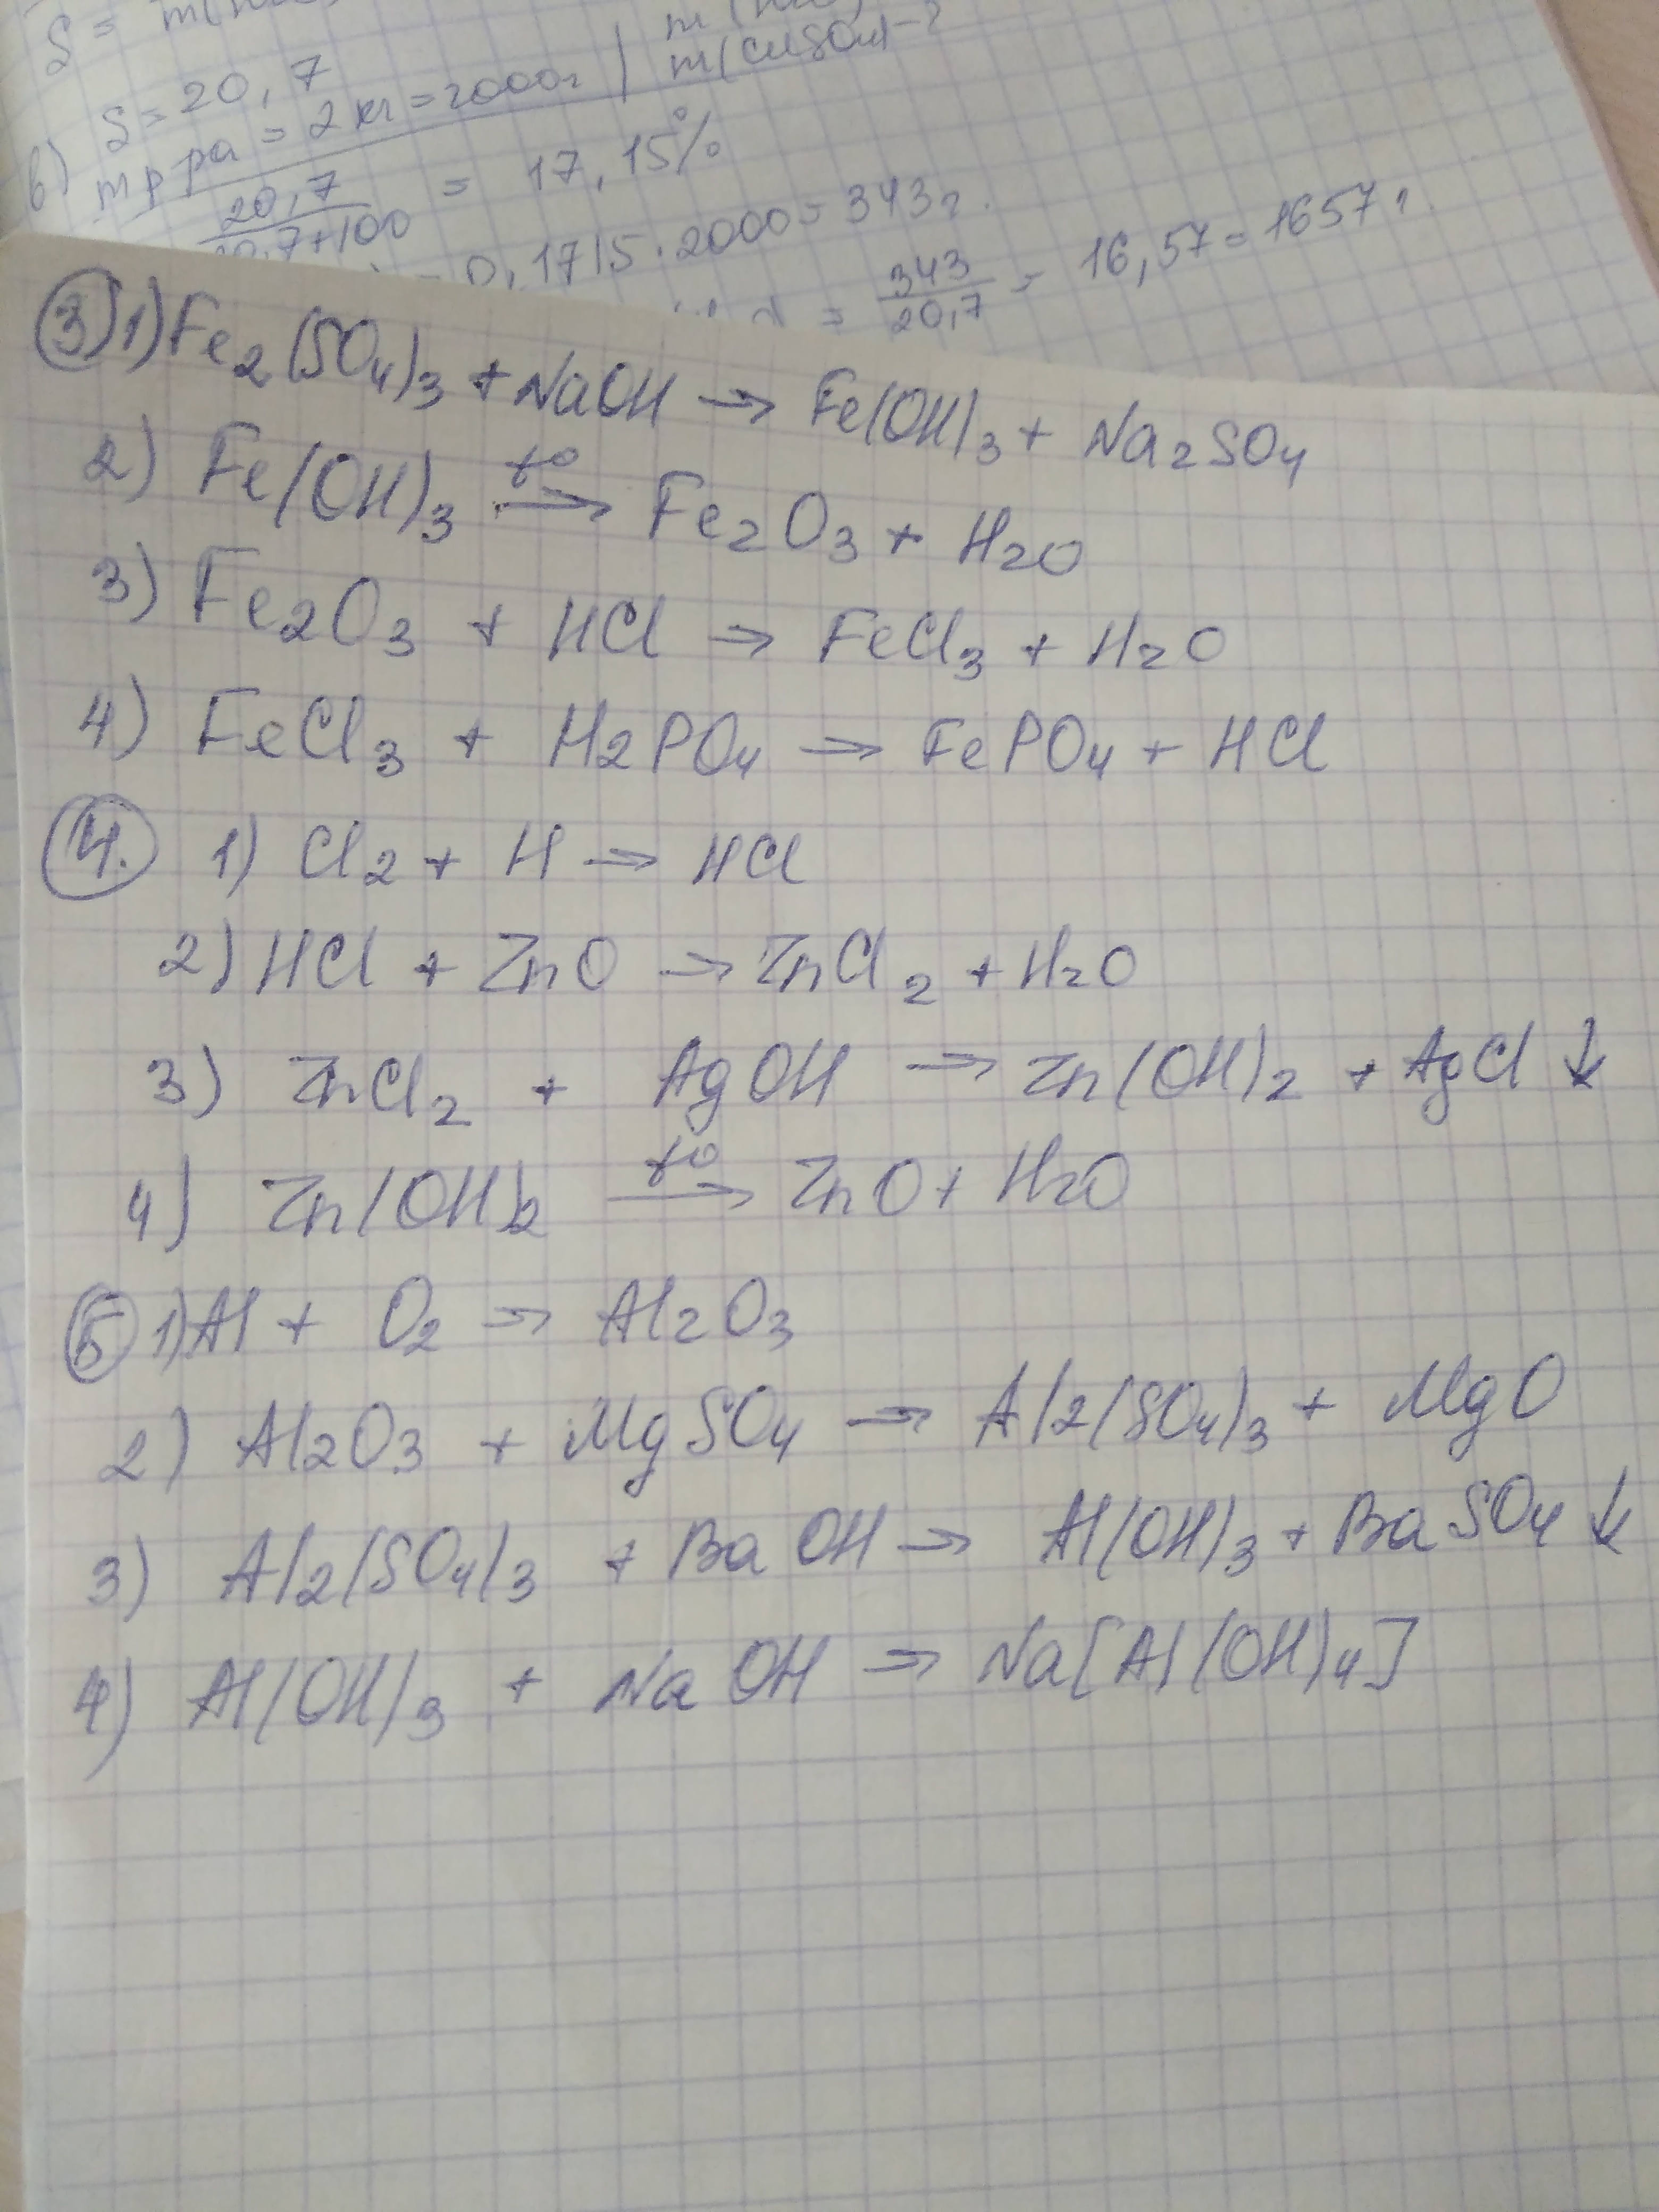 S = m(
S = 20,7
m(CuSO4) - ?
в) mр-ра = 2 кг = 2000г
20,7 = 17,15%
20,7+100
0,1715 · 2000 = 343г.
= 343 = 16,57 = 1657г
20,7
3) 1) Fe2(SO4)3 + NaOH → Fe(OH)3 + Na2SO4
2) Fe(OH)3 t° → Fe2O3 + H2O
3) Fe2O3 + HCl → FeCl3 + H2O
4) FeCl3 + H2PO4 → FePO4 + HCl
4. 1) Cl2 + H → HCl
2) HCl + ZnO → ZnCl2 + H2O
3) ZnCl2 + AgOH → Zn(OH)2 + AgCl ↓
4) Zn(OH)2 t° → ZnO + H2O
5 1) Al + O2 → Al2O3
2) Al2O3 + MgSO4 → Al2(SO4)3 + MgO
3) Al2(SO4)3 + BaOH → Al(OH)3 + BaSO4 ↓
4) Al(OH)3 + NaOH → Na[Al(OH)4]